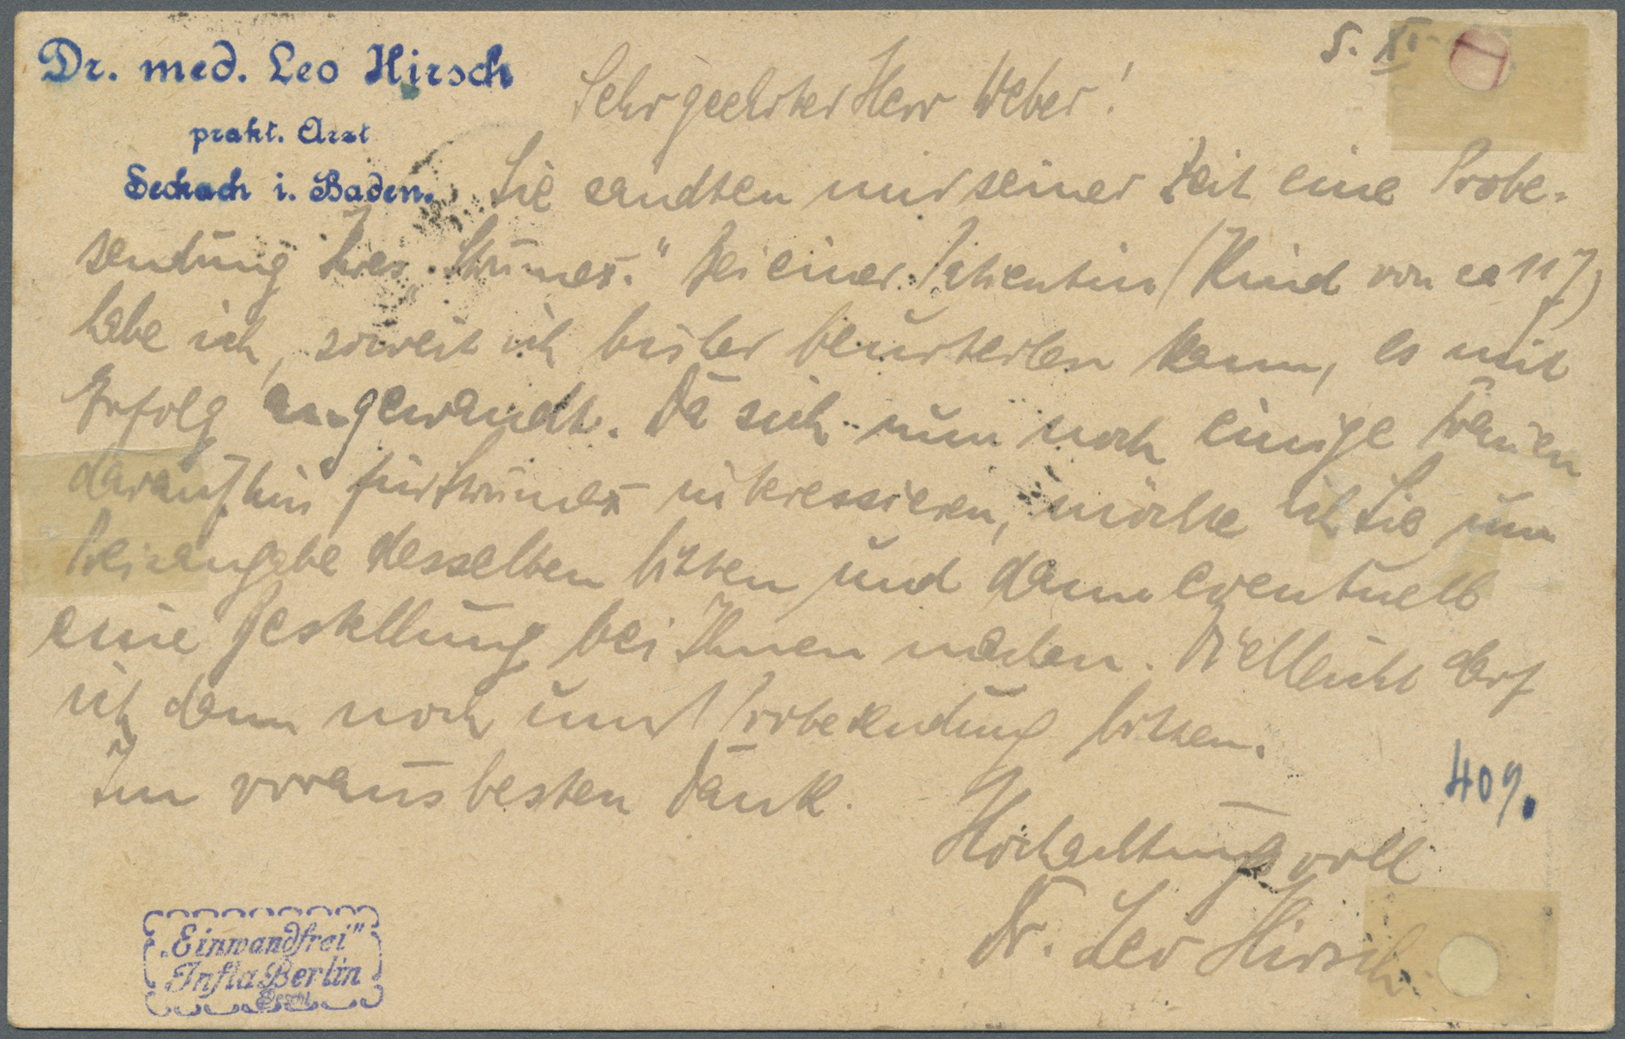 Dr. med. Leo Hirsch
prakt. Arzt
Seckach i. Baden.
5. XI.
Sehr geehrter Herr Weber!
Sie sandten mir seiner Zeit eine Probe-
sendung Ihres „Strumex." Bei einer Patientin (Kind von ca 11 J)
habe ich, soweit ich bisher beurteilen kann, es mit
Erfolg angewandt. Da sich nun noch einige Frauen
daraufhin für Strumex interessieren, möchte ich Sie um
Preisangabe desselben bitten und dann eventuell
eine Bestellung bei Ihnen machen. Vielleicht darf
ich dann noch um 1 Probesendung bitten.
Im voraus besten Dank.
409.
Hochachtungsvoll
Dr. Leo Hirsch.
„Einwandfrei"
Infla Berlin